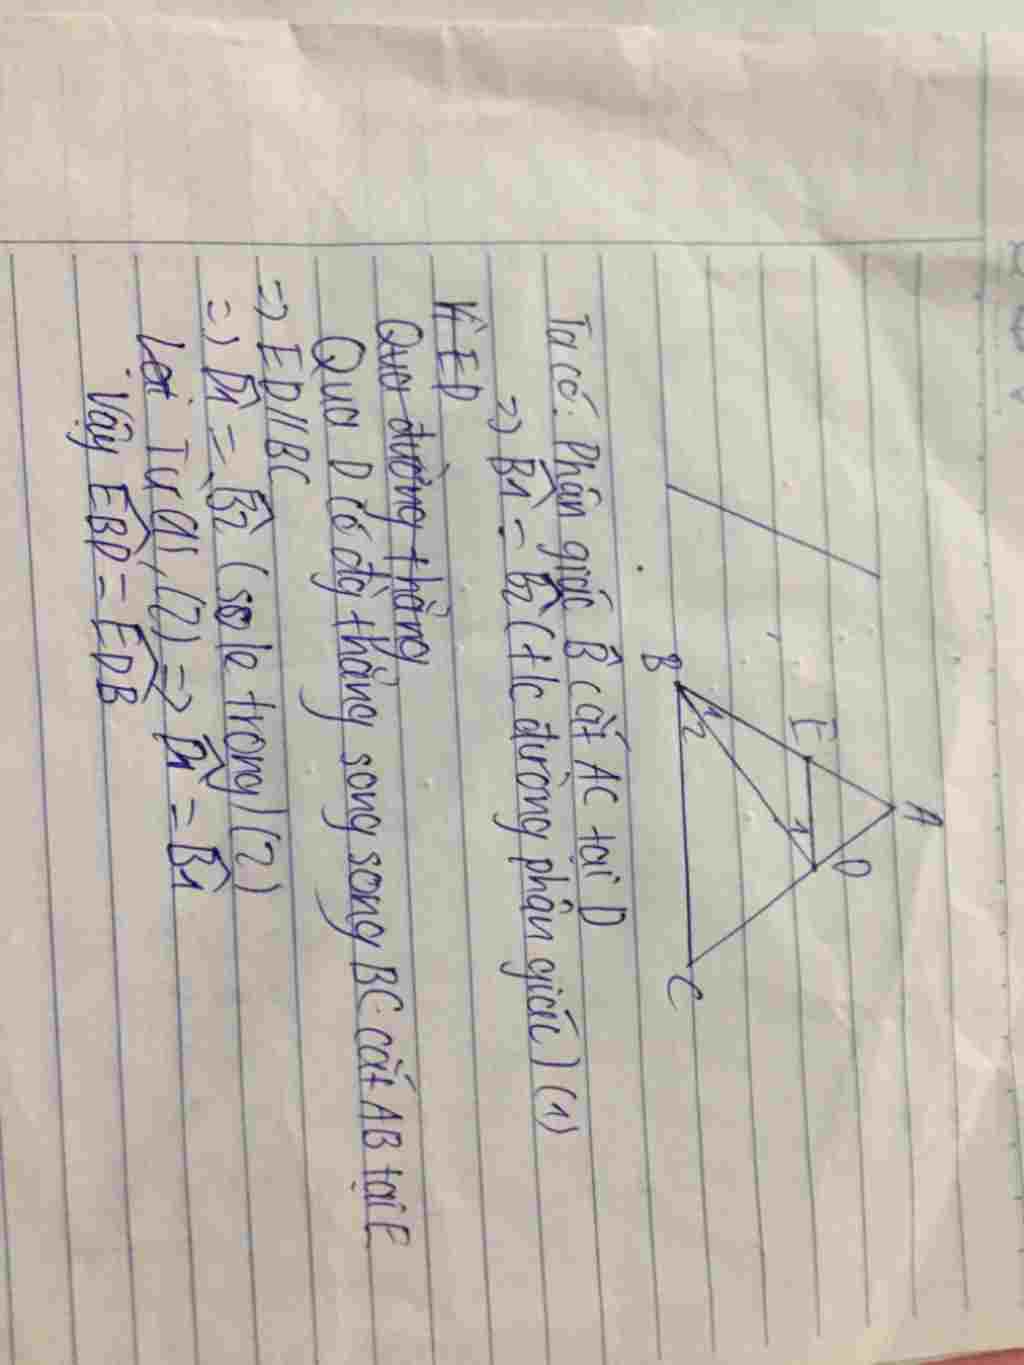 A
E
D
1
1
2
B
C
Ta có: Phân giác B̂ cắt AC tại D
=> B̂1 = B̂2 (t/c đường phân giác) (1)
Kẻ ED
Qua đường thẳng
Qua D có đg thẳng song song BC cắt AB tại E
=> ED // BC
=> D̂1 = B̂2 (so le trong) (2)
Từ (1), (2) => D̂1 = B̂1
Vậy EB̂D = ED̂B